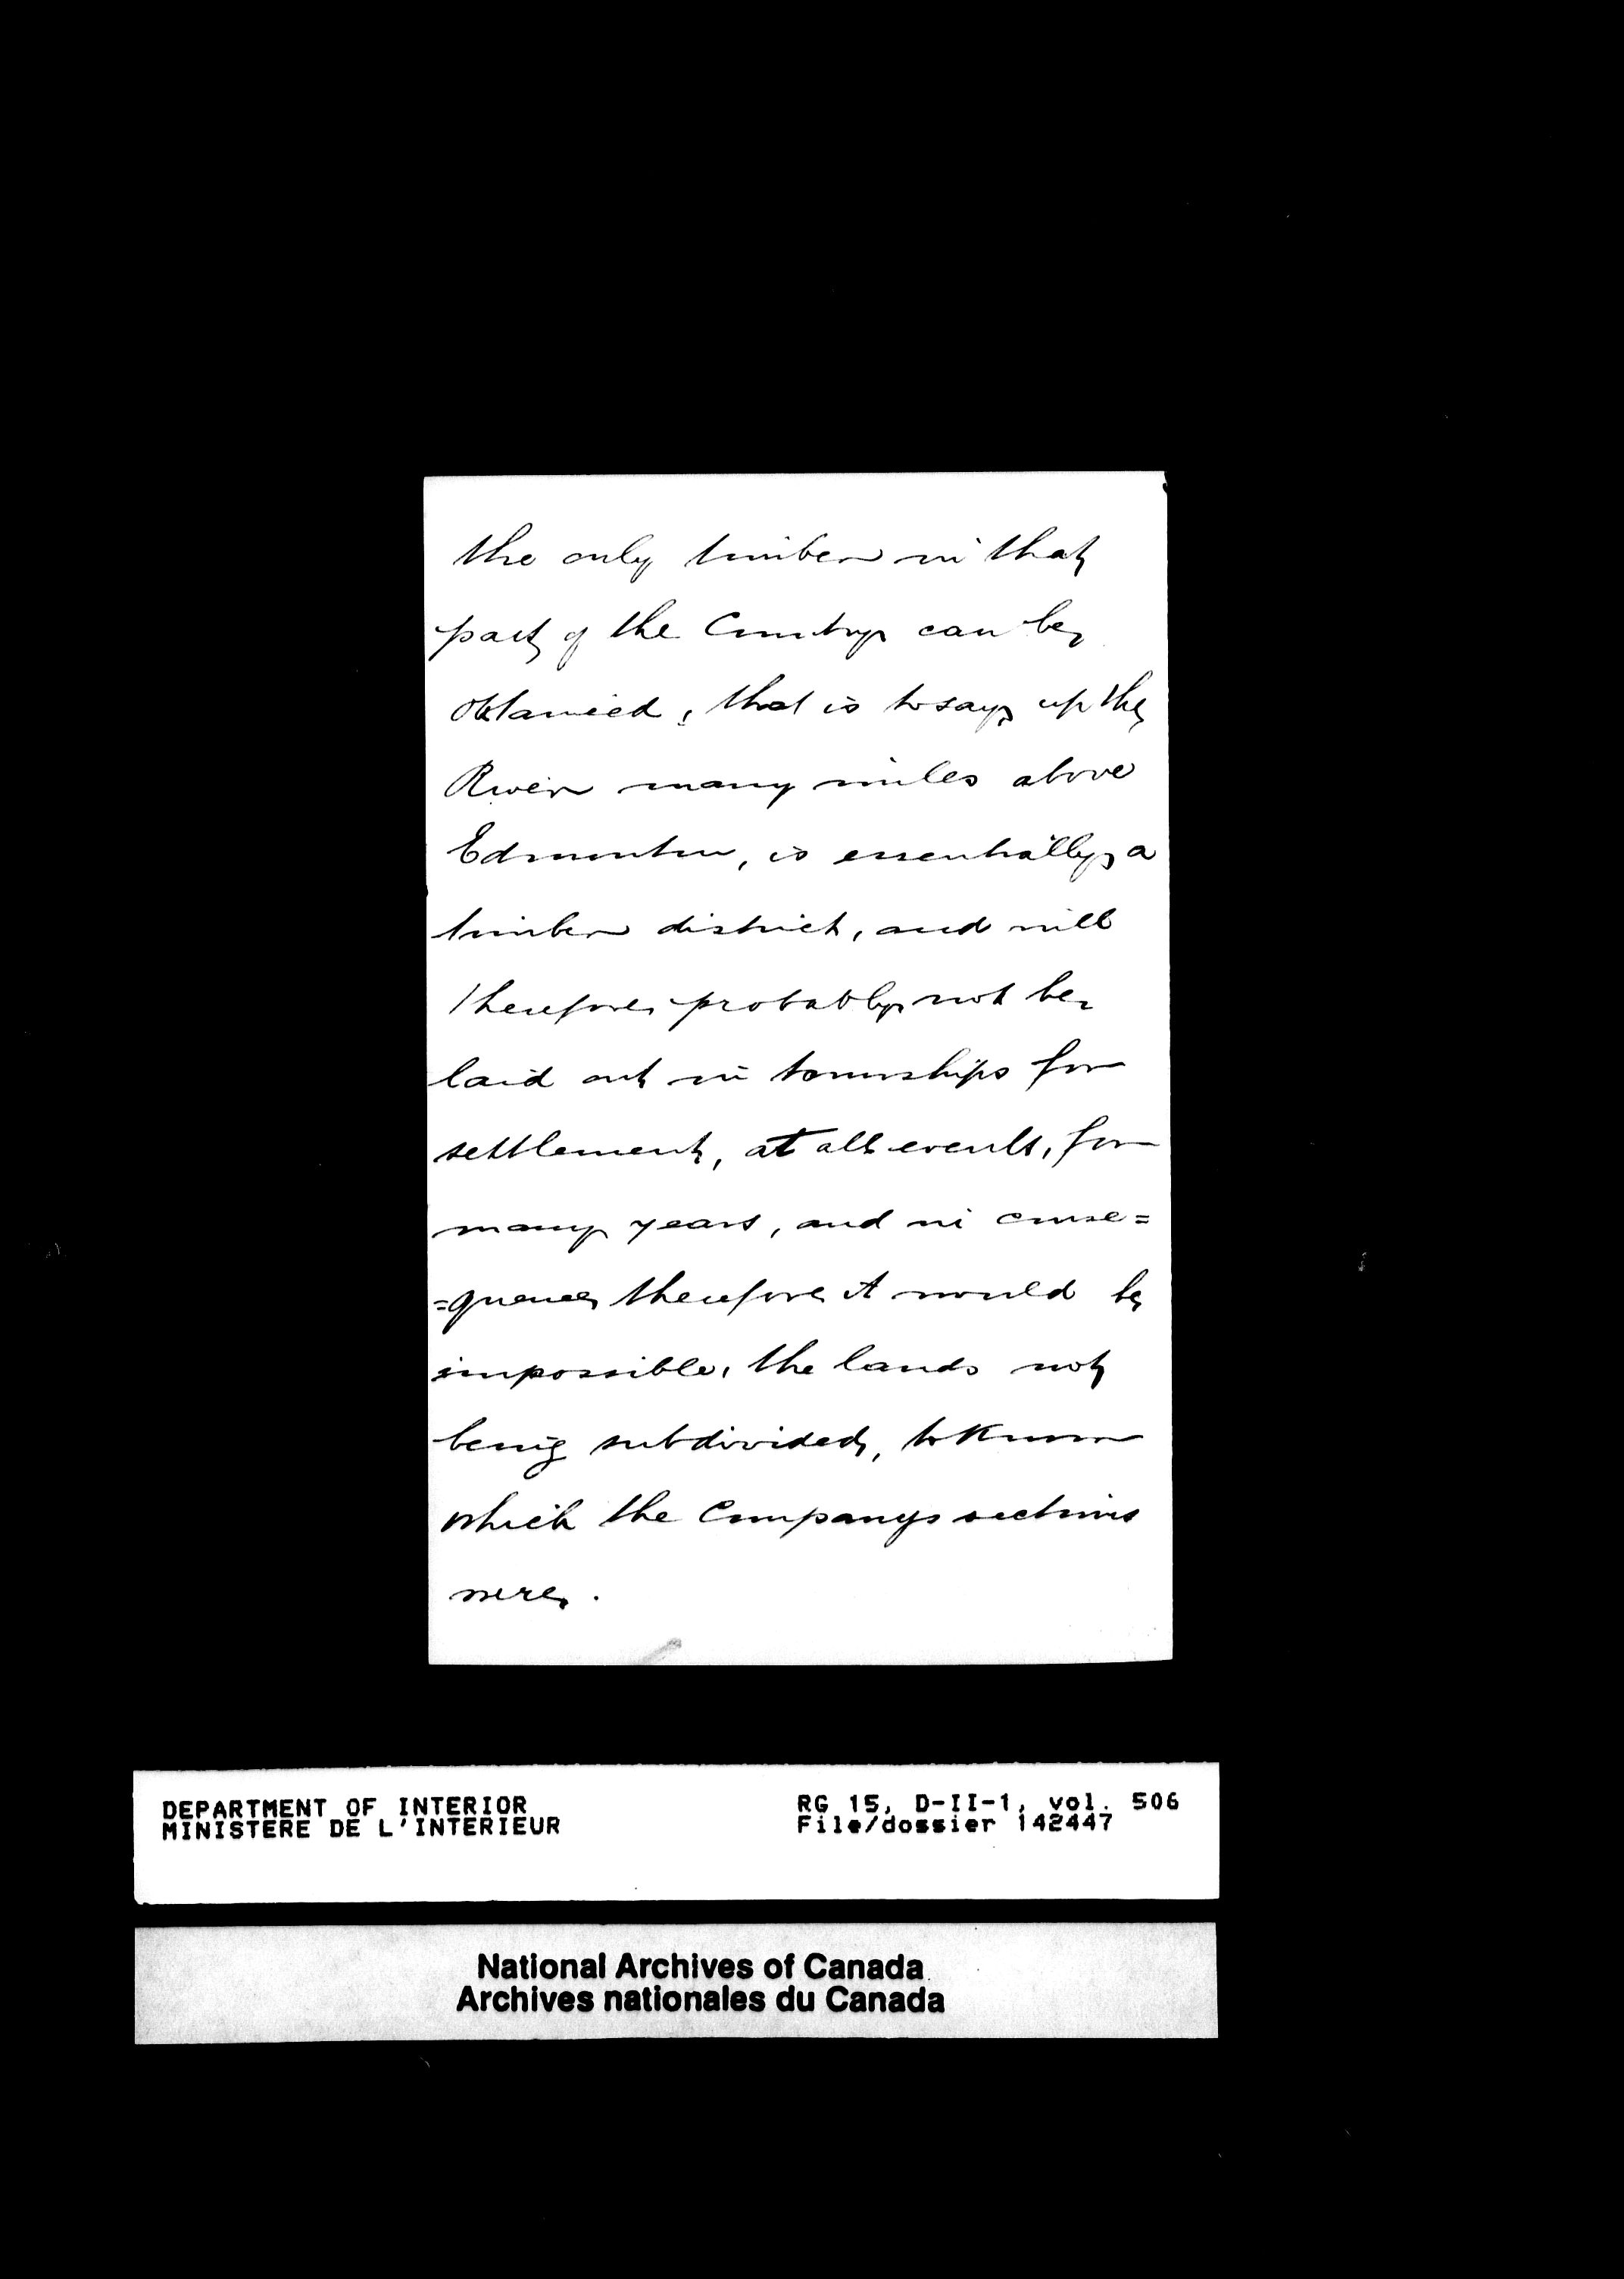 the only timber in that
part of the Country can be
obtained, that is to say, up the
River many miles above
Edmonton, is essentially a
timber district, and will
therefore probably not be
laid out in townships for
settlement, at all events, for
many years, and in conse=
=quence therefore it would be
impossible, the lands not
being subdivided, to know
which the Companys sections
were.
DEPARTMENT OF INTERIOR
MINISTERE DE L'INTERIEUR
RG 15, D-II-1, vol. 506
File/dossier 142447
National Archives of Canada
Archives nationales du Canada